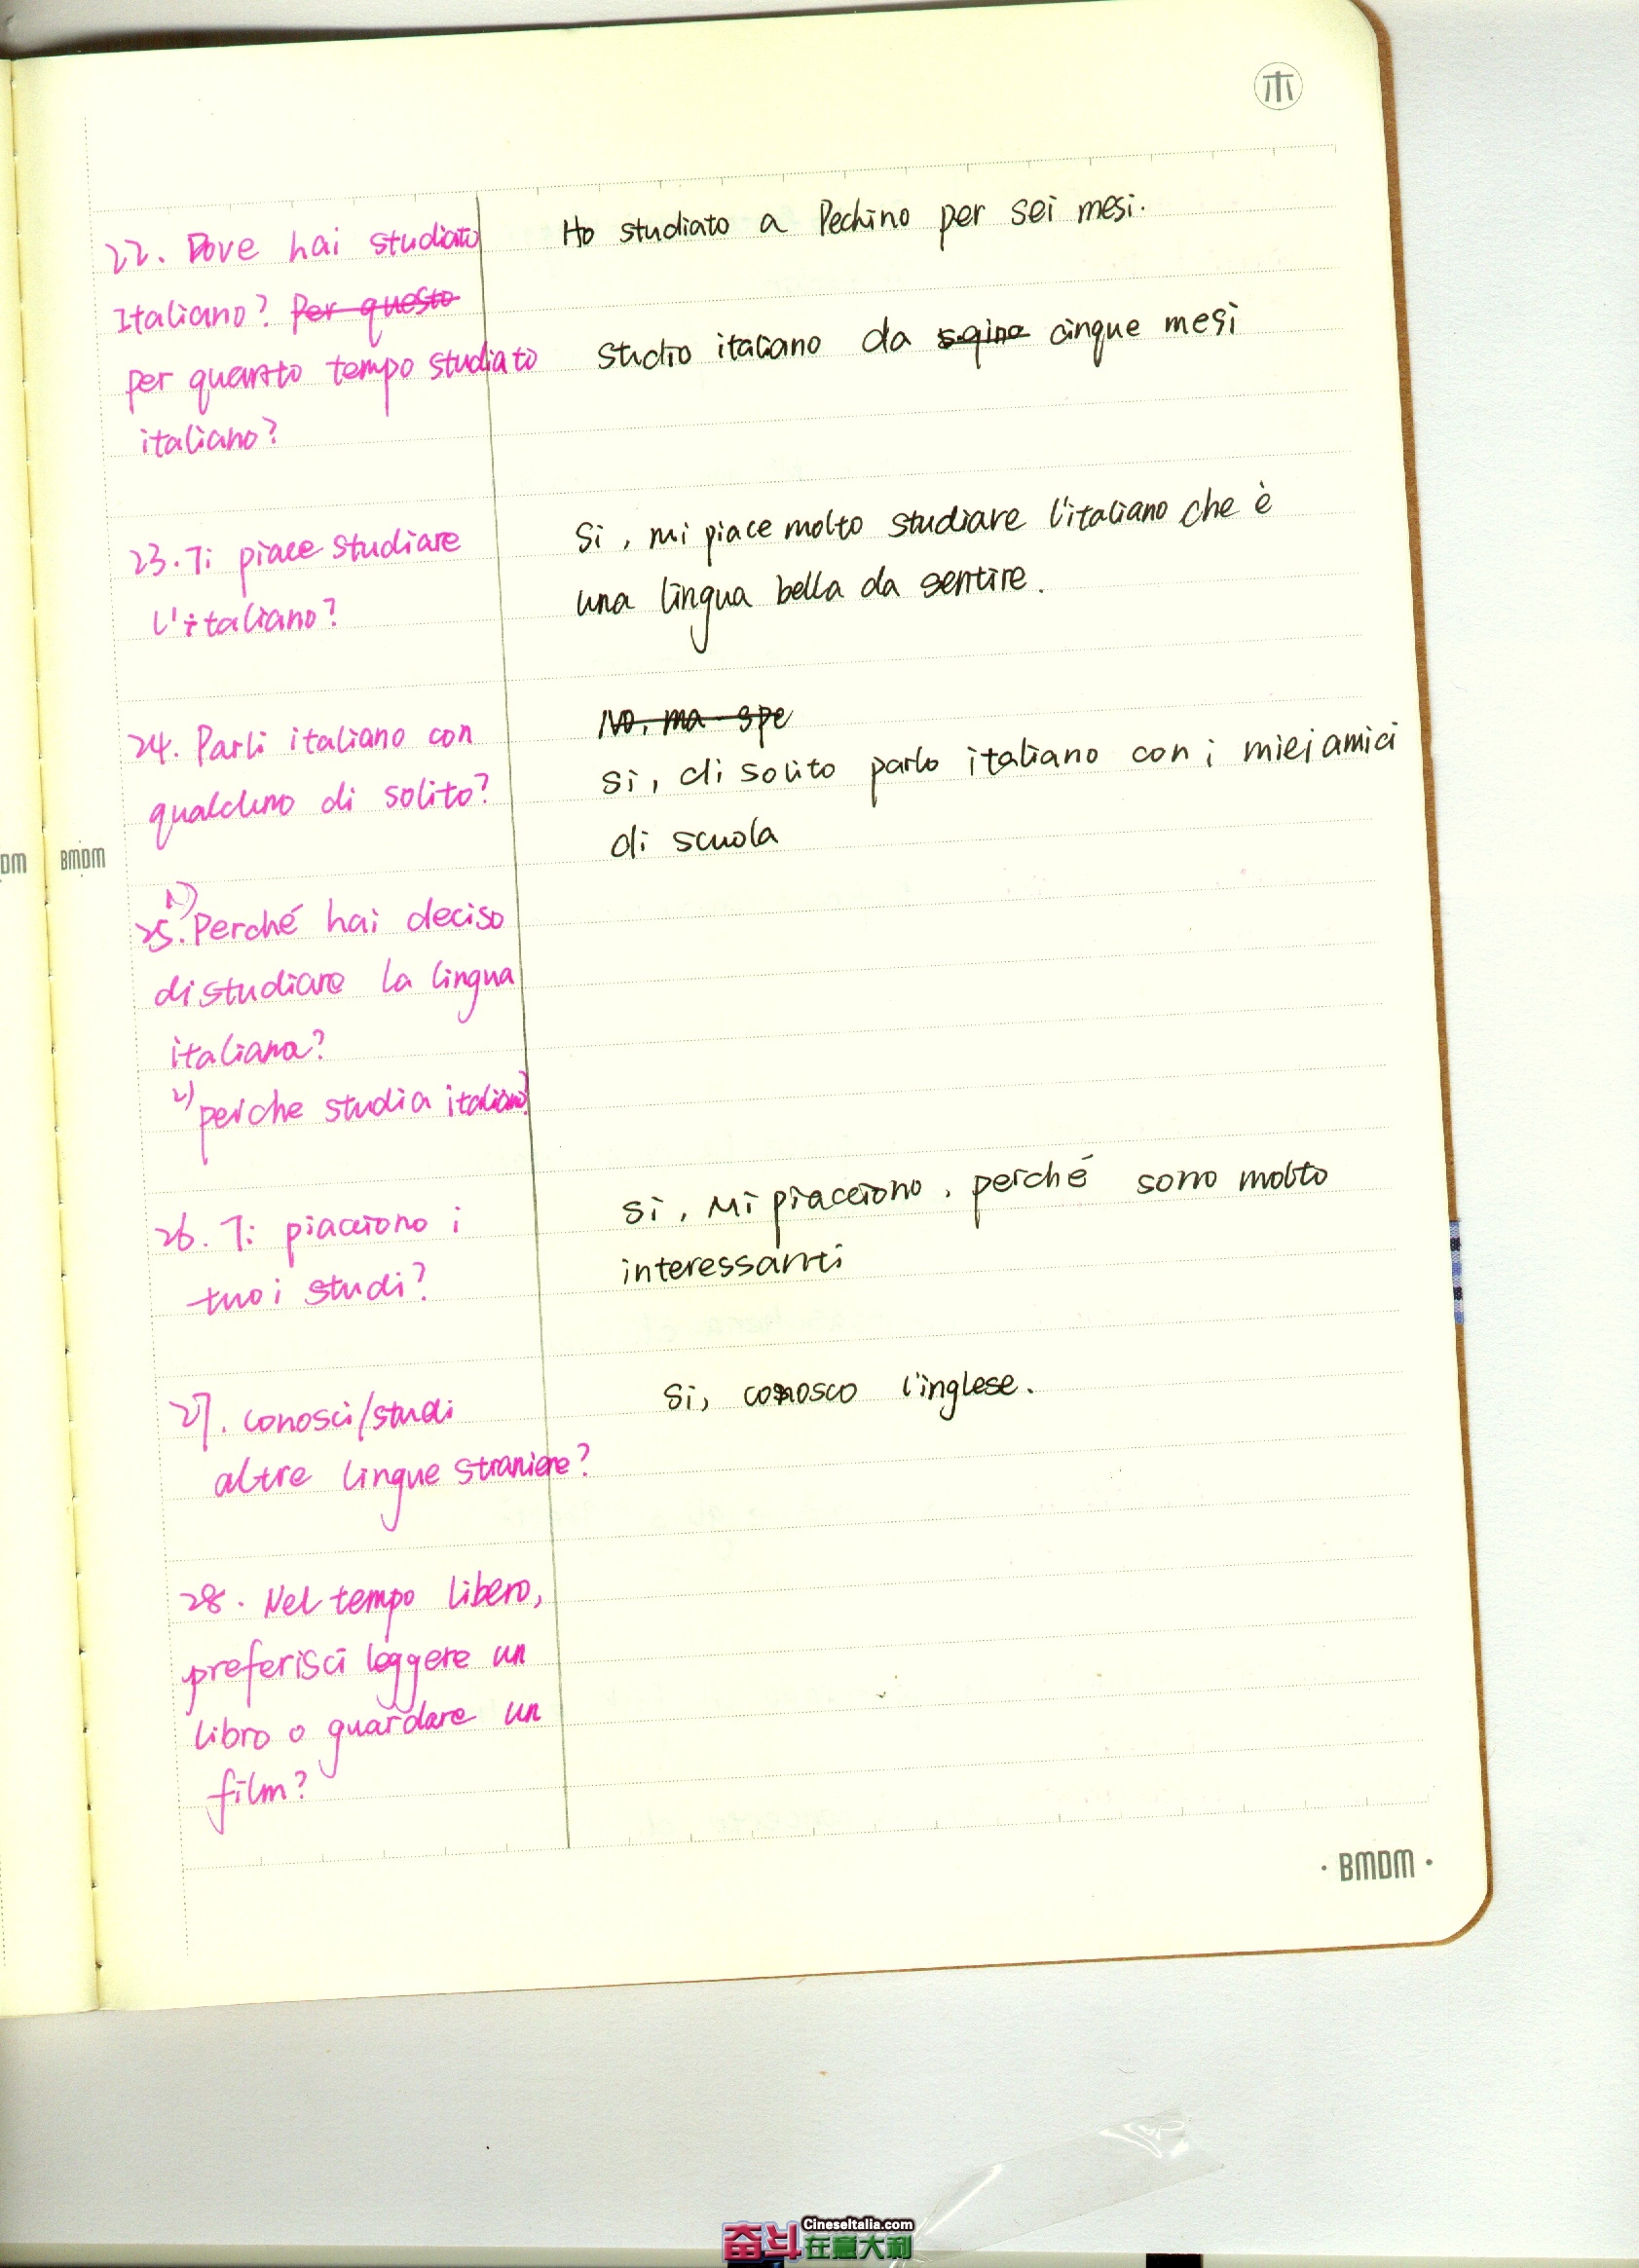 22. Dove hai studiato
Italiano? Per questo
per quanto tempo studiato
italiano?
Ho studiato a Pechino per sei mesi.
Studio italiano da cinque mesi
23. Ti piace studiare
l'italiano?
Si, mi piace molto studiare l'italiano che è
una lingua bella da sentire.
24. Parli italiano con
qualcuno di solito?
No, ma spe
Si, di solito parlo italiano con i miei amici
di scuola
25. 1) Perché hai deciso
di studiare la lingua
italiana?
2) perche studia italiano?
26. Ti piacciono i
tuoi studi?
Si, Mi piacciono, perché sono molto
interessanti
27. conosci/studi
altre lingue straniere?
Si, conosco l'inglese.
28. Nel tempo libero,
preferisci leggere un
libro o guardare un
film?
BMDM
DM
· BMDM ·
CineseItalia.com
奋斗在意大利